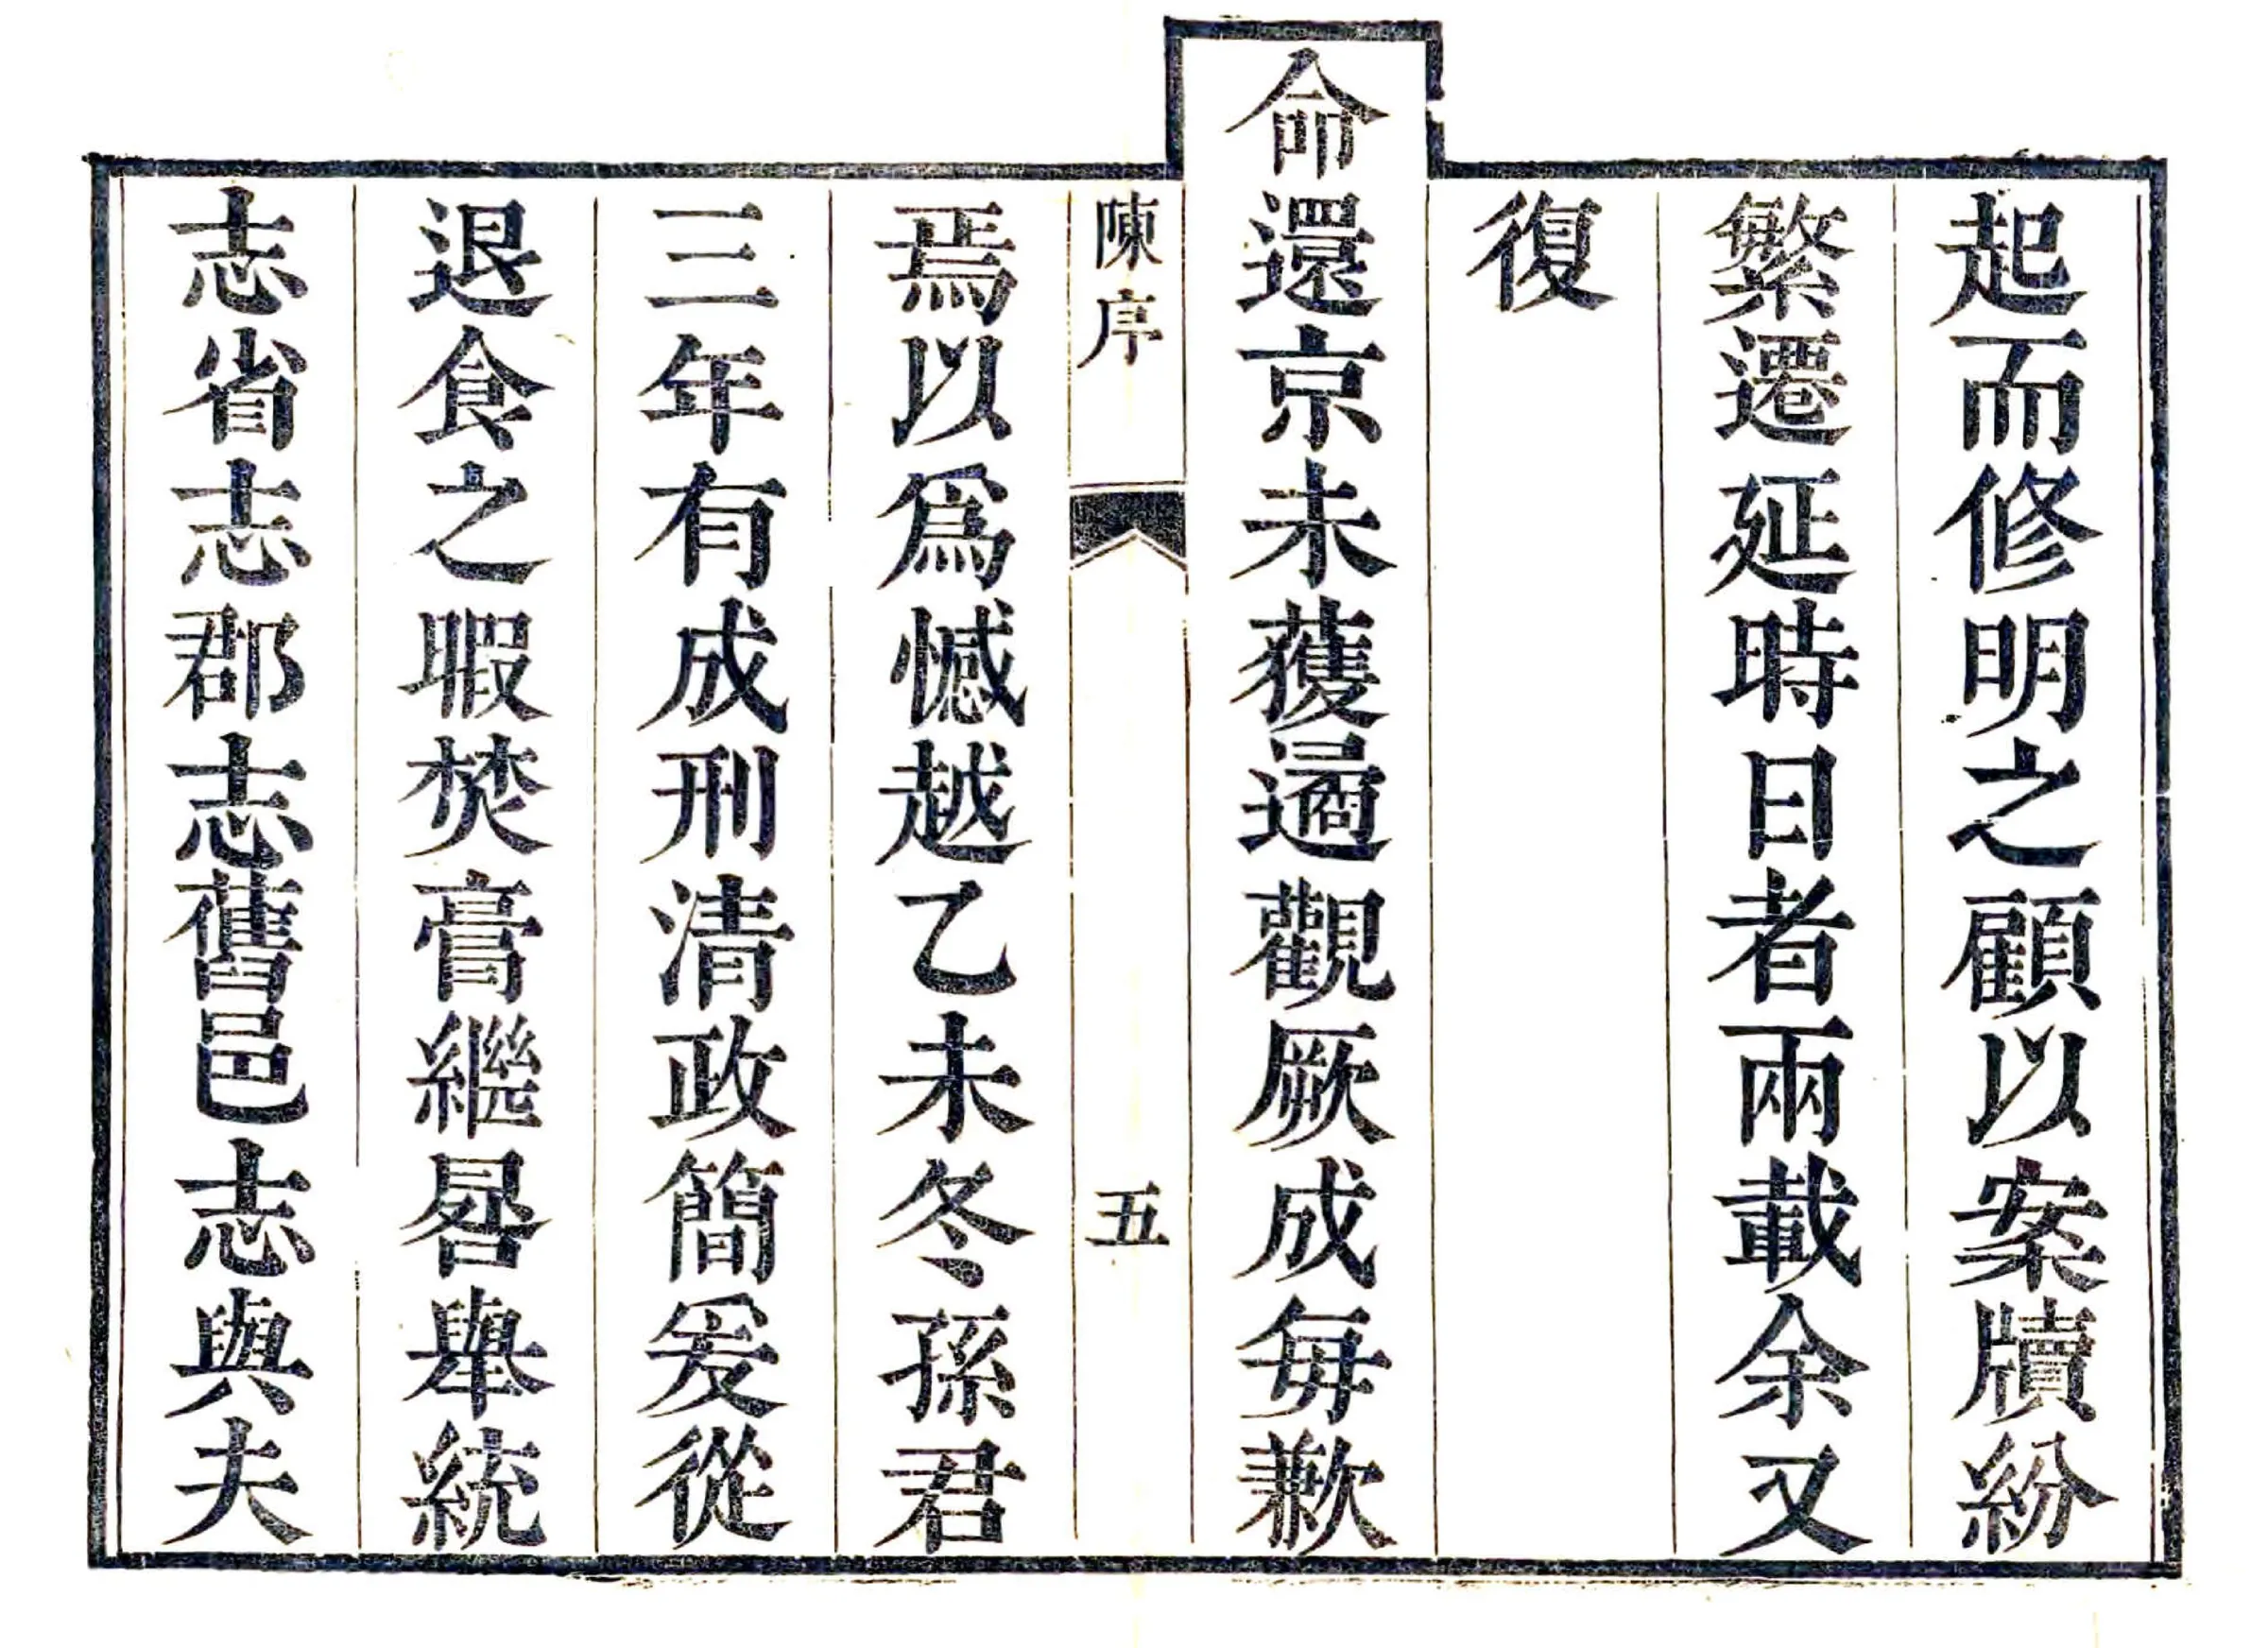 起而修明之顧以案牘紛
繁遷延時日者兩載余又
復
命還京未獲遹觀厥成每歉
陳序 五
焉以爲憾越乙未冬孫君
三年有成刑清政簡爰從
退食之暇焚膏繼晷舉統
志省志郡志舊邑志與夫